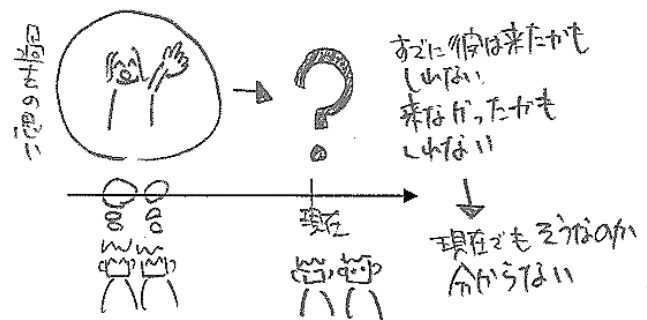 の思い
?
すでに彼は来たかも
しれない
来なかったかも
しれない
現在
現在でもそうなのか
分からない